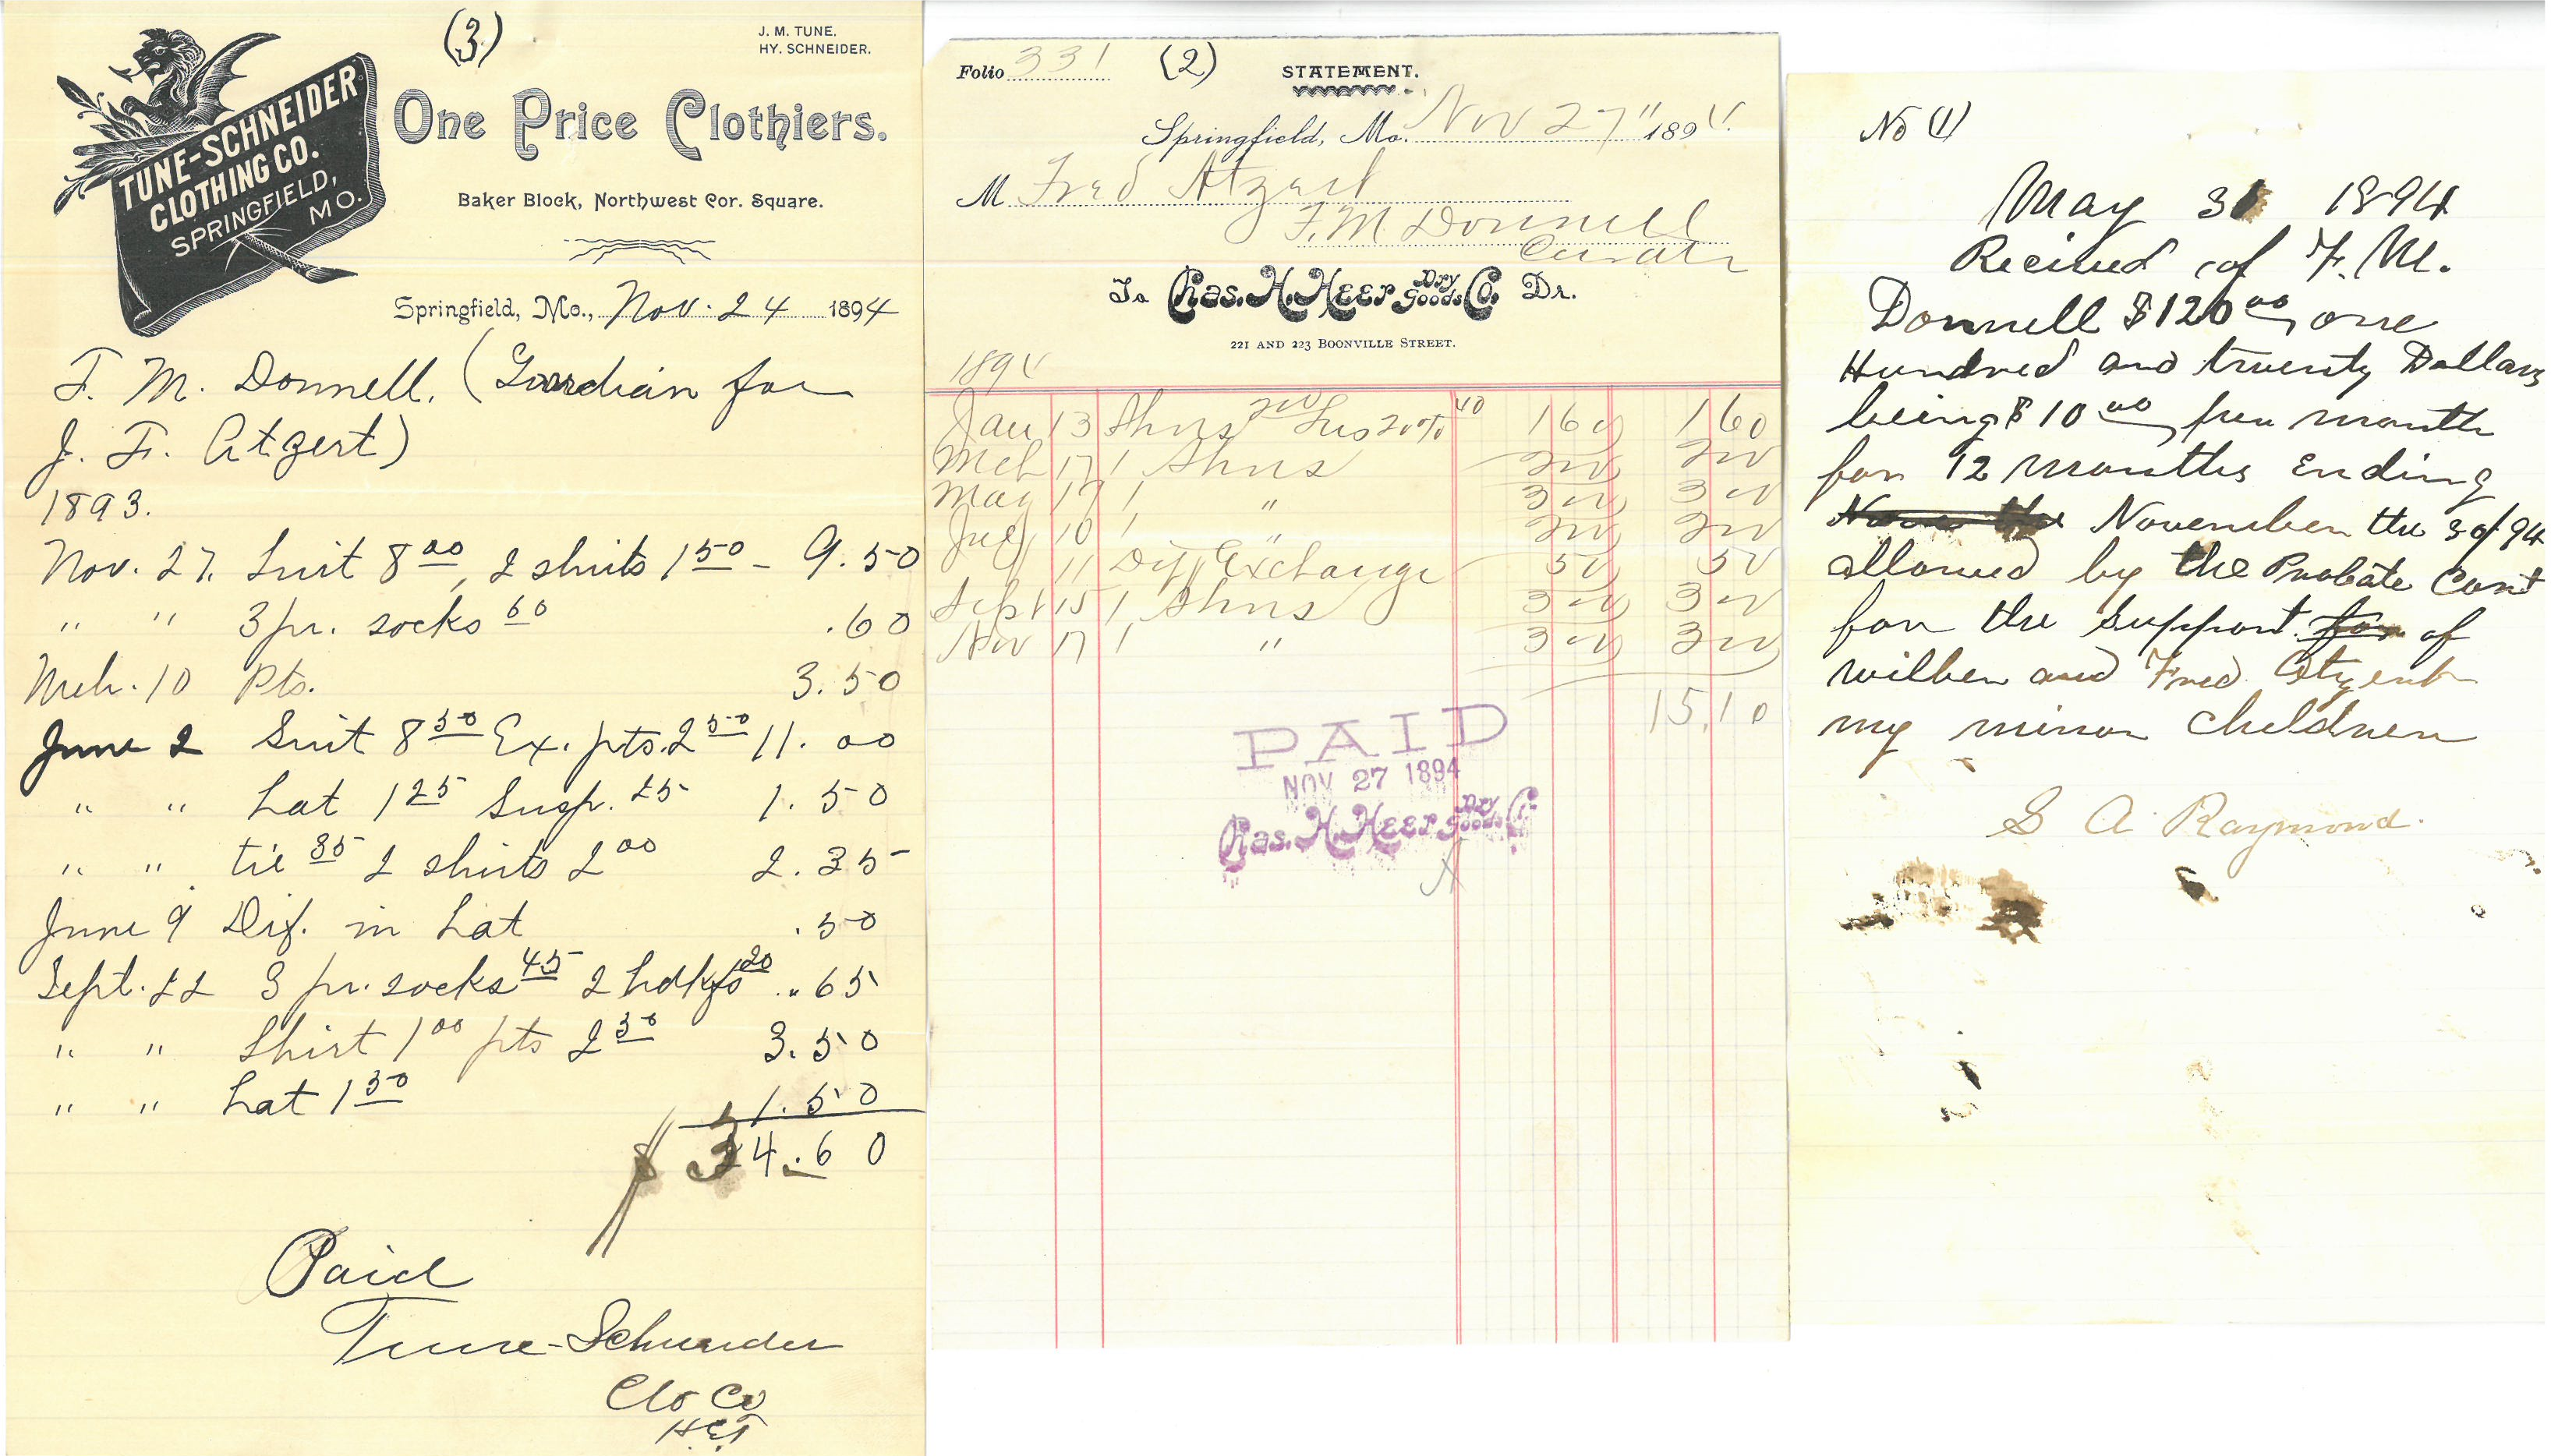 (3)
J. M. TUNE.
HY. SCHNEIDER.
TUNE-SCHNEIDER
CLOTHING CO.
SPRINGFIELD,
MO.
One Price Clothiers.
Baker Block, Northwest Cor. Square.
Springfield, Mo., Nov. 24 1894
F. M. Donnell, (Guardian for
J. F. Atzert)
1893.
Nov. 27. Suit 8 00, 2 shirts 1 50 - 9.50
" " 3 pr. socks 60 .60
Mch. 10 Pts. 3.50
June 2 Suit 8 50 Ex. pts. 2 50 11.00
" " hat 1 25 Susp. 25 1.50
" " tie 35 2 shirts 2 00 2.35
June 9 Dif. in hat .50
Sept. 22 3 pr. socks 45 2 hdkfs 20 .65
" " Shirt 1 00 pts 2 50 3.50
" " hat 1 50 1.50
$ 34.60
Paid
Tune-Schneider
Clo Co
Folio 331 (2) STATEMENT.
Springfield, Mo. Nov 27" 1894.
M Fred Atzert
F. M Donnell
Curator
To Chas. H. Heer Dry Goods Co. Dr.
221 AND 223 BOONVILLE STREET.
1894
Jan 13 Shoes 200 Less 20% 40 160 160
Mch 17 1 Shoes 200 200
May 17 1 " 300 300
July 10 1 " 200 200
11 Diff Exchange 50 50
Sept 15 1 Shoes 300 300
Nov 17 1 " 300 300
15.10
PAID
NOV 27 1894
Chas. H. Heer Dry Goods Co.
No (1)
May 31 1894
Recived of F. M.
Donnell $120 00 one
Hundred and twenty Dollars
being $10 00 per month
for 12 months Ending
November the 30/94
allowed by the Probate Cort
for the Support of
wilber and Fred Atzert
my minor children
S A Raymond.